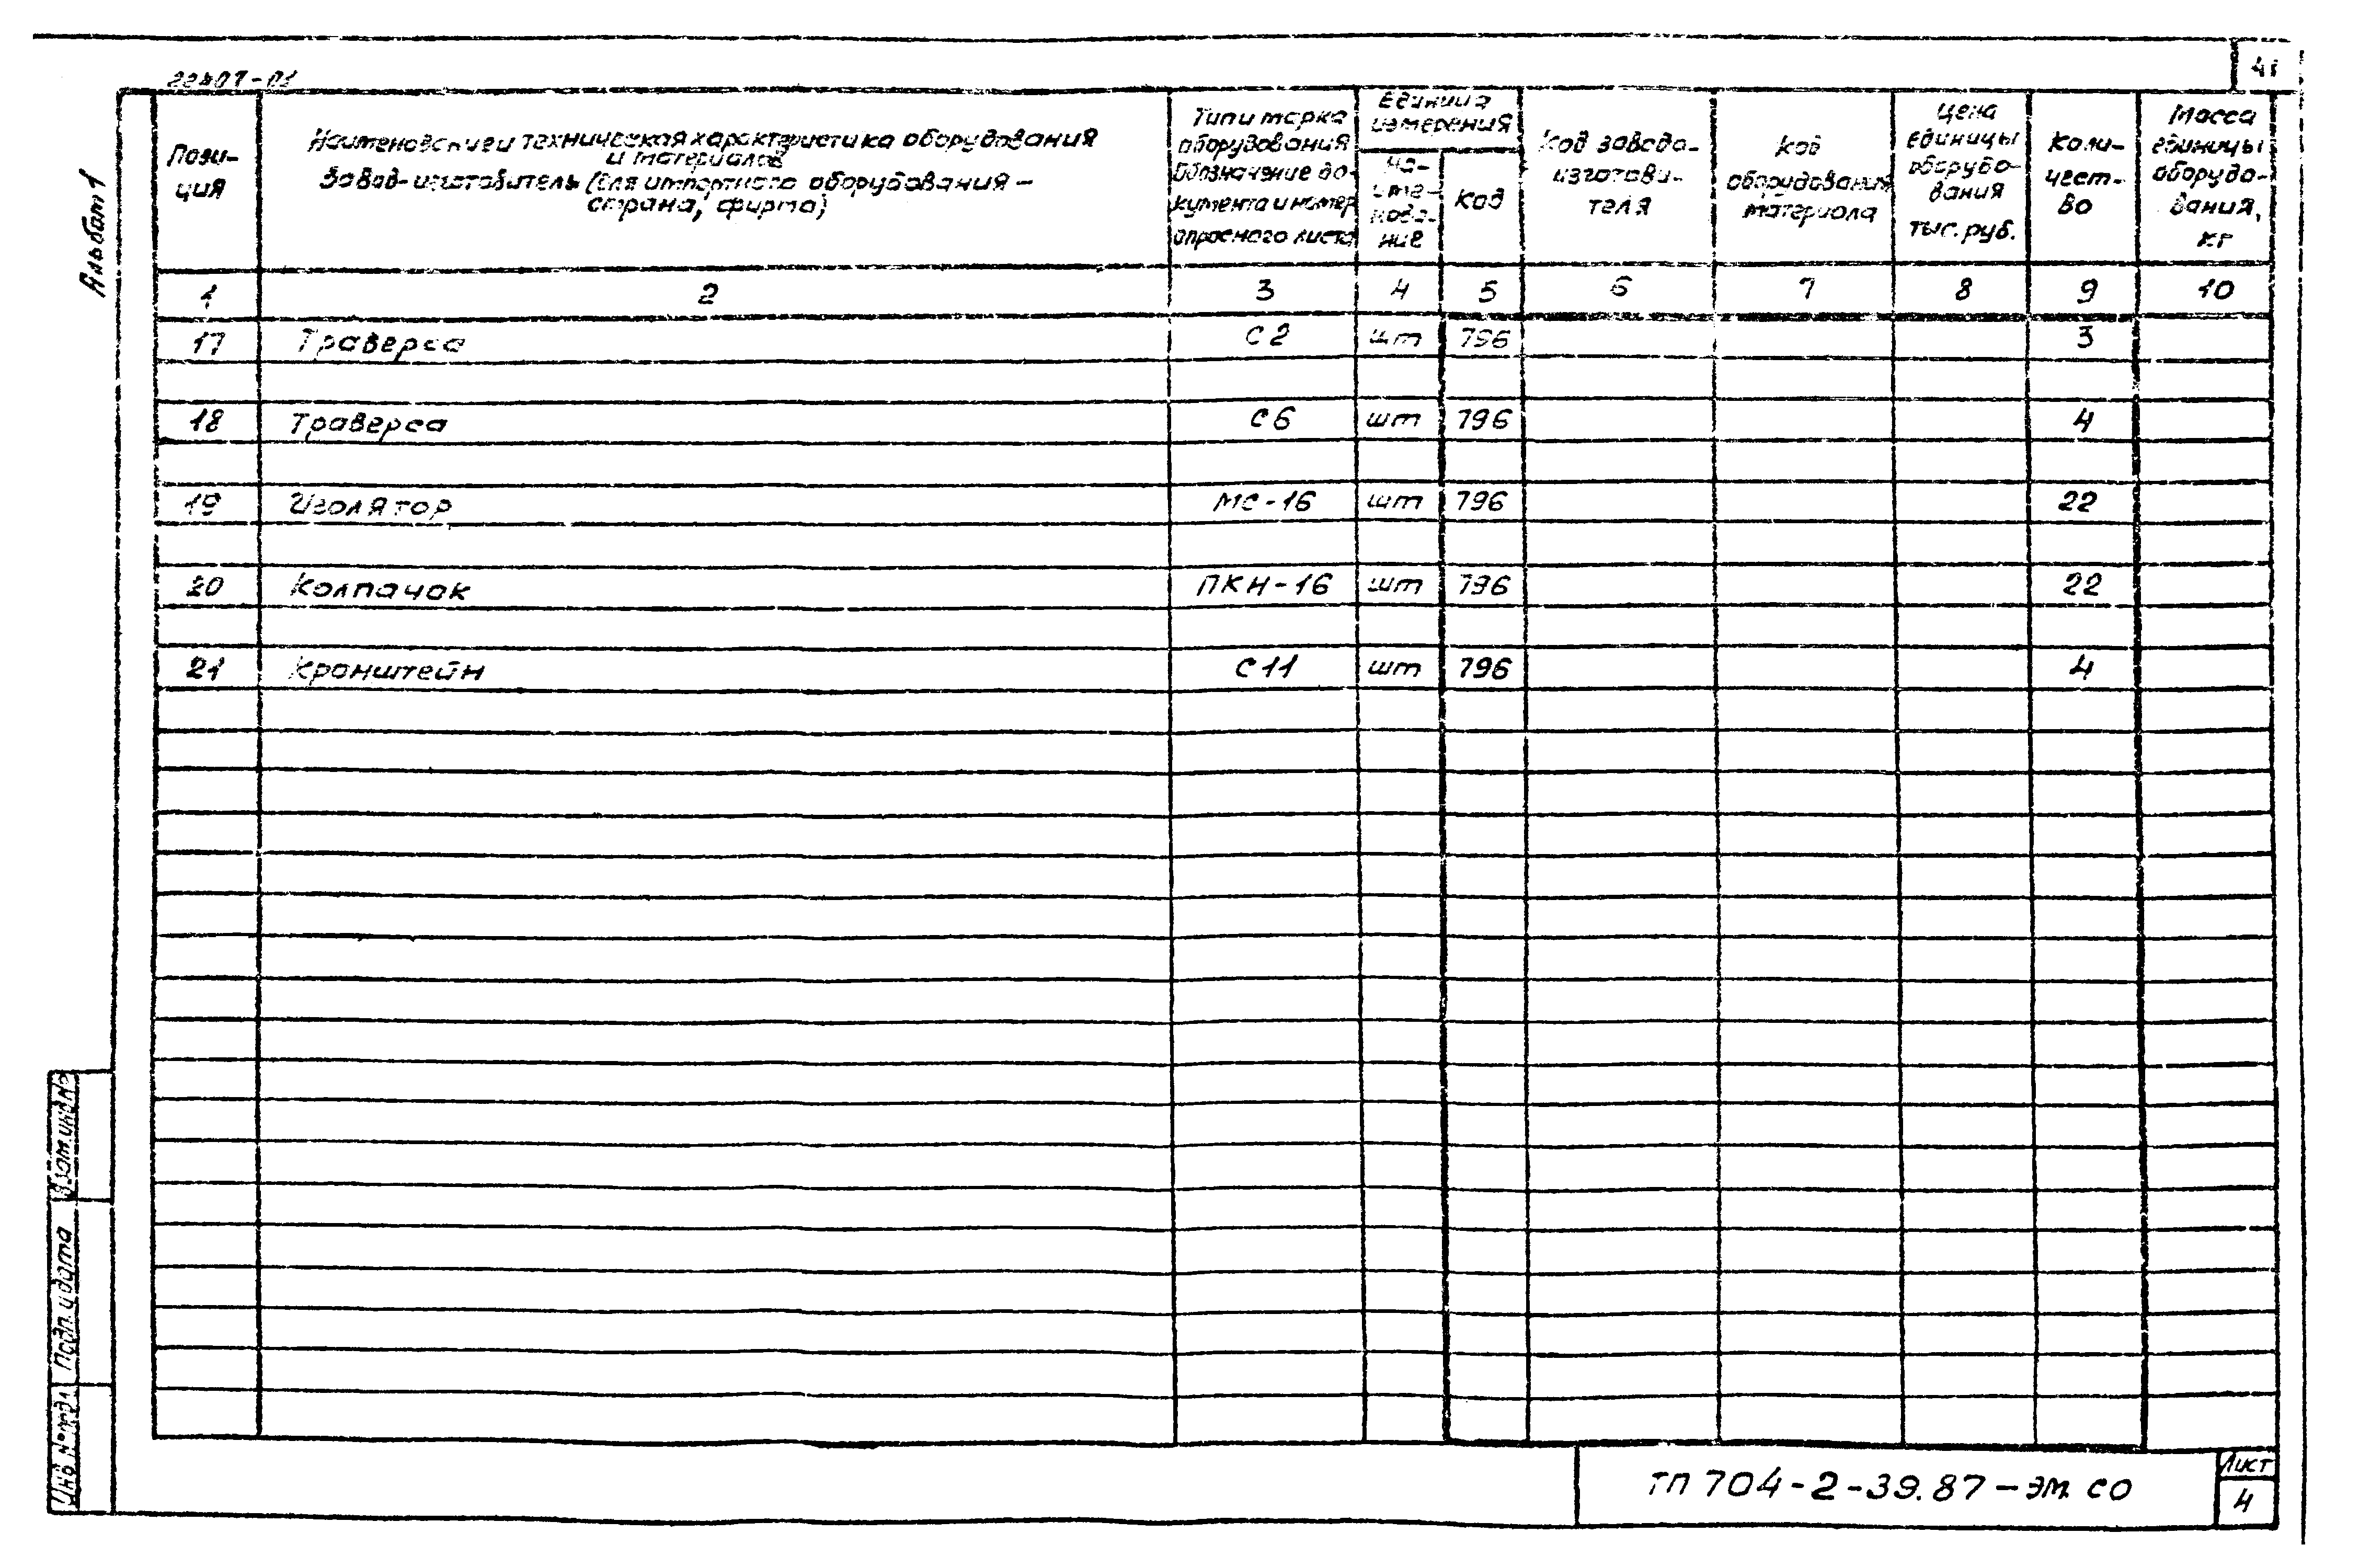 41
22407-01
Альбом 1
Пози-
ция
Наименование и техническая характеристика оборудования
и материалов
Завод-изготовитель (для импортного оборудования –
страна, фирма)
Тип и марка
оборудования
Обозначение до-
кумента и номер
опросного листа
Единица
измерения
На-
име-
нова-
ние
Код
Код завода-
изготови-
теля
Код
оборудования
материала
Цена
единицы
оборудо-
вания
тыс. руб.
Коли-
чест-
во
Масса
единицы
оборудо-
вания,
кг
1 2 3 4 5 6 7 8 9 10
17 Траверса С2 шт 796 3
18 Траверса С6 шт 796 4
19 Изолятор МС-16 шт 796 22
20 Колпачок ПКН-16 шт 796 22
21 Кронштейн С11 шт 796 4
Взам. инв №
Подп. и дата
Инв № подл
ТП 704-2-39.87-ЭМ. СО
Лист
4